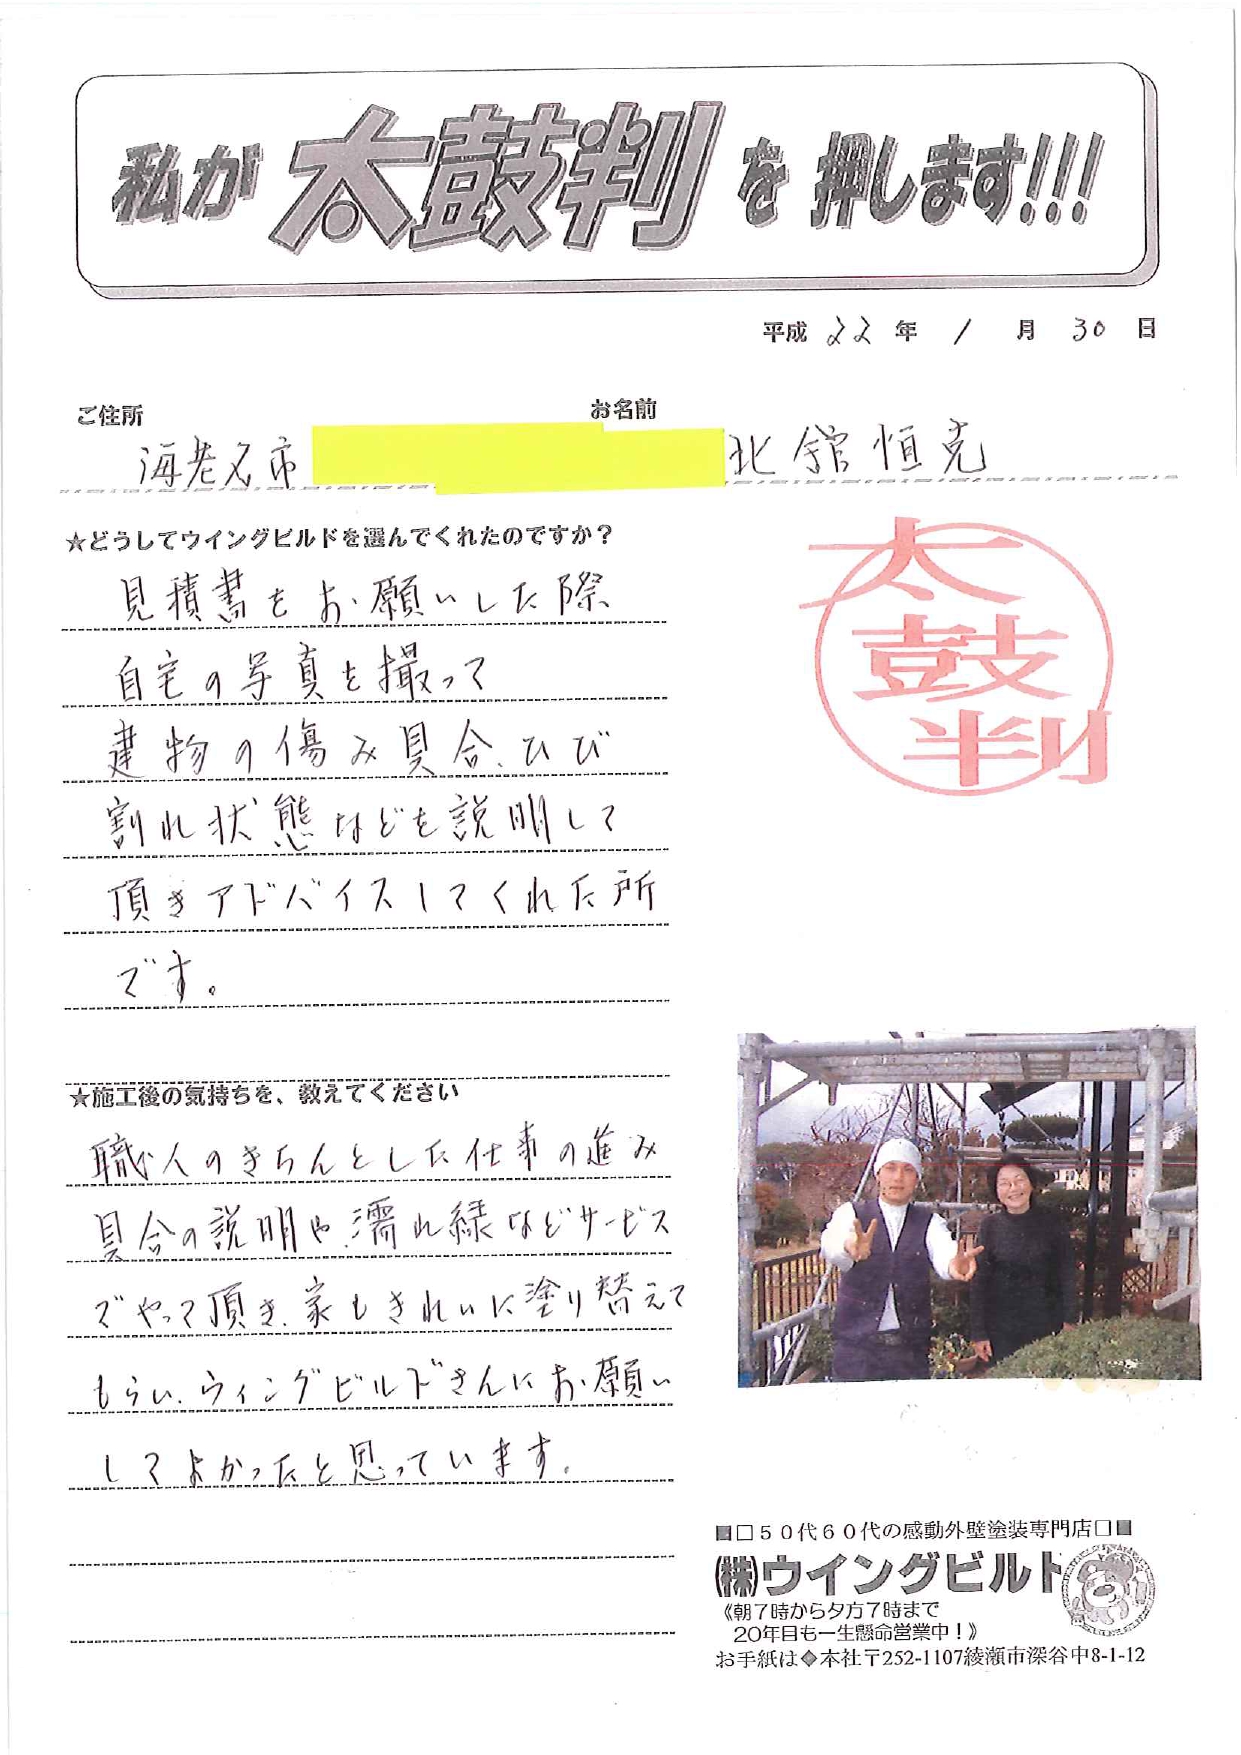 私が太鼓判を押します!!!
平成22年1月30日
ご住所
お名前
海老名市
北舘恒克
★どうしてウイングビルドを選んでくれたのですか？
太鼓判
見積書をお願いした際、
自宅の写真を撮って
建物の傷み具合、ひび
割れ状態などを説明して
頂きアドバイスしてくれた所
です。
★施工後の気持ちを、教えてください
職人のきちんとした仕事の進み
具合の説明や濡れ縁などサービス
でやって頂き、家もきれいに塗り替えて
もらい、ウィングビルドさんにお願い
してよかったと思っています。
■□５０代６０代の感動外壁塗装専門店□■
㈱ウイングビルド
《朝７時から夕方７時まで
20年目も一生懸命営業中！》
お手紙は◆本社〒252-1107綾瀬市深谷中8-1-12